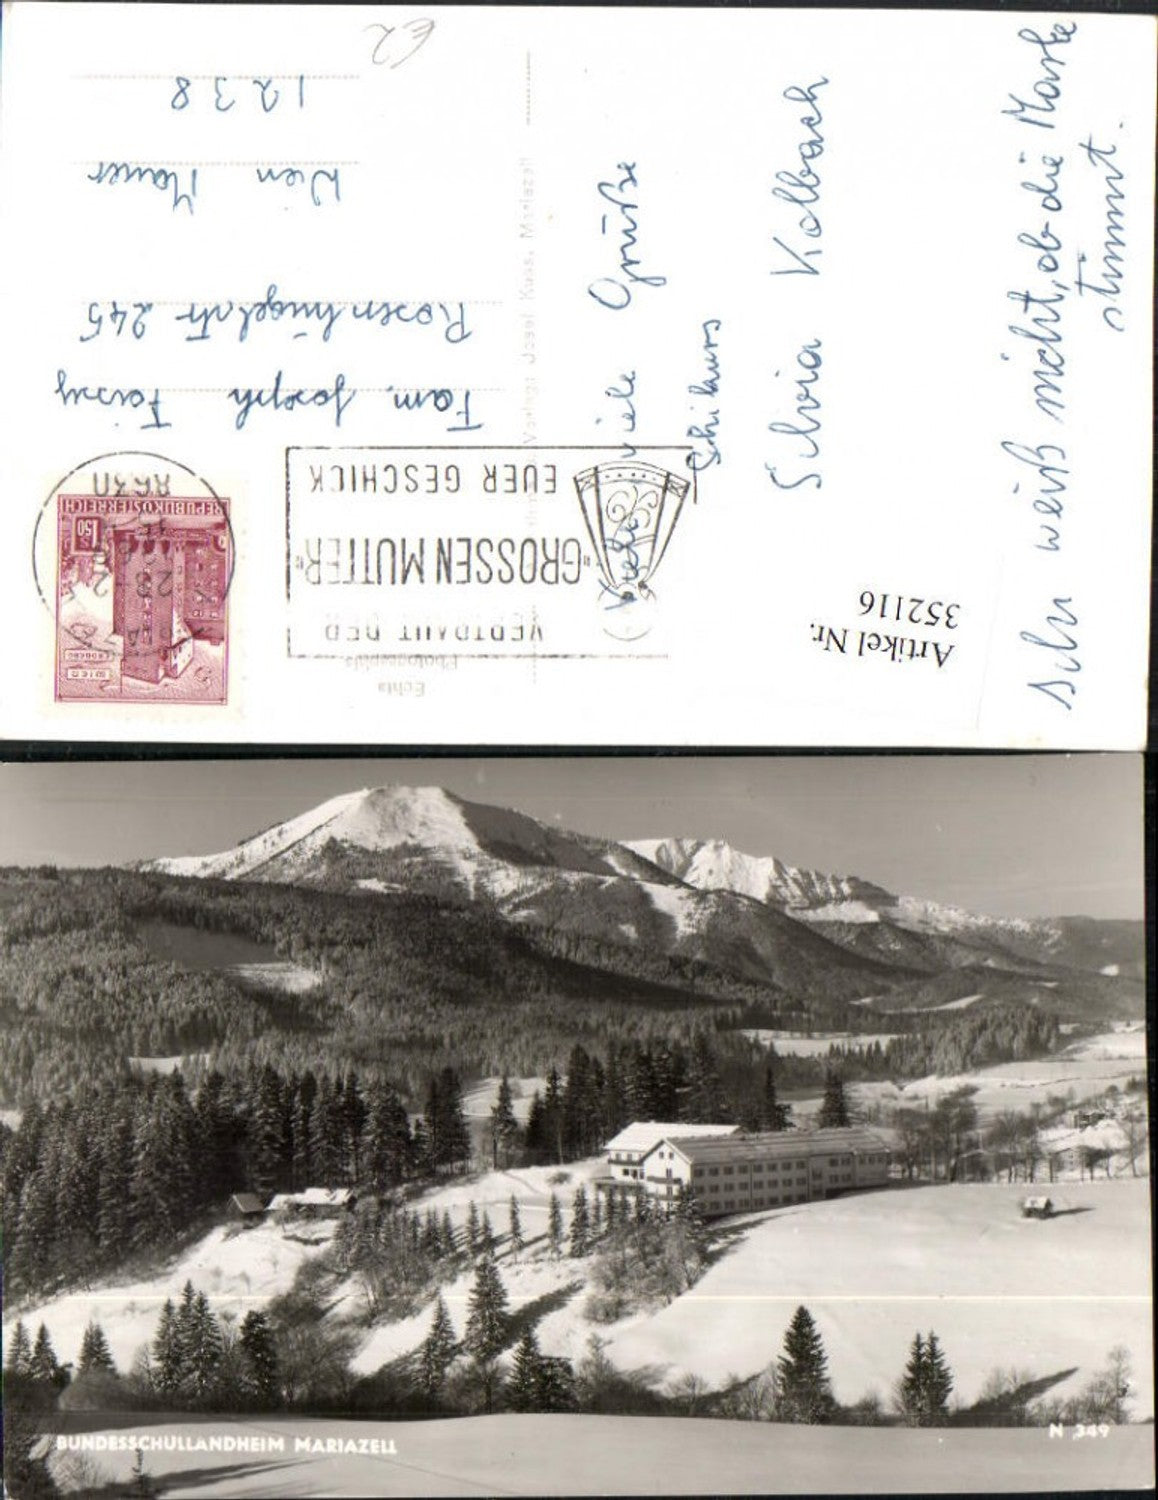 €2
Viele viele Grüße
Schikurs
Silvia Kolbach
Ich weiß nicht, ob die Marke
stimmt.
Fam. Joseph
Rosenhügelstr 245
Wien Mauer
1238
REPUBLIK ÖSTERREICH
1.50
WIEN
ERDBERG
VERTRAUT DER
"GROSSEN MUTTER"
EUER GESCHICK
8630
Echte
Photographie
Verlag: Josef Kuss, Mariazell
Artikel Nr.
352116
BUNDESSCHULLANDHEIM MARIAZELL
N 349